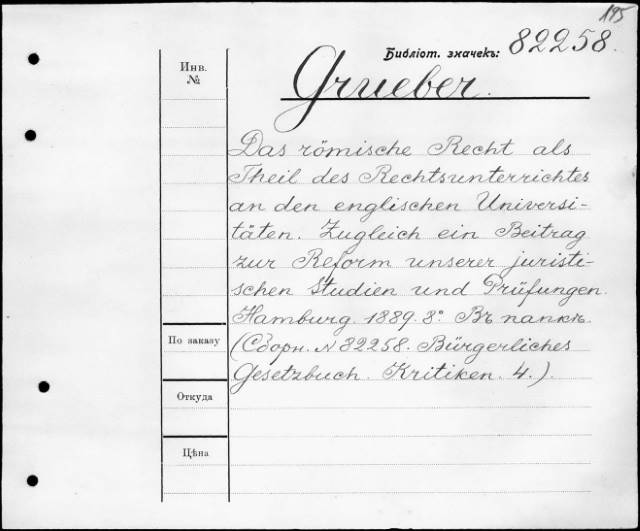 195
Библіот. значекъ: 82258.
Инв.
№
Grueber.
Das römische Recht als
Theil des Rechtsunterrichtes
an den englischen Universi-
täten. Zugleich ein Beitrag
zur Reform unserer juristi-
schen Studien und Prüfungen.
Hamburg. 1889. 8°. Въ папкѣ.
(Сборн. № 82258. Bürgerliches
Gesetzbuch. Kritiken. 4.).
По заказу
Откуда
Цѣна